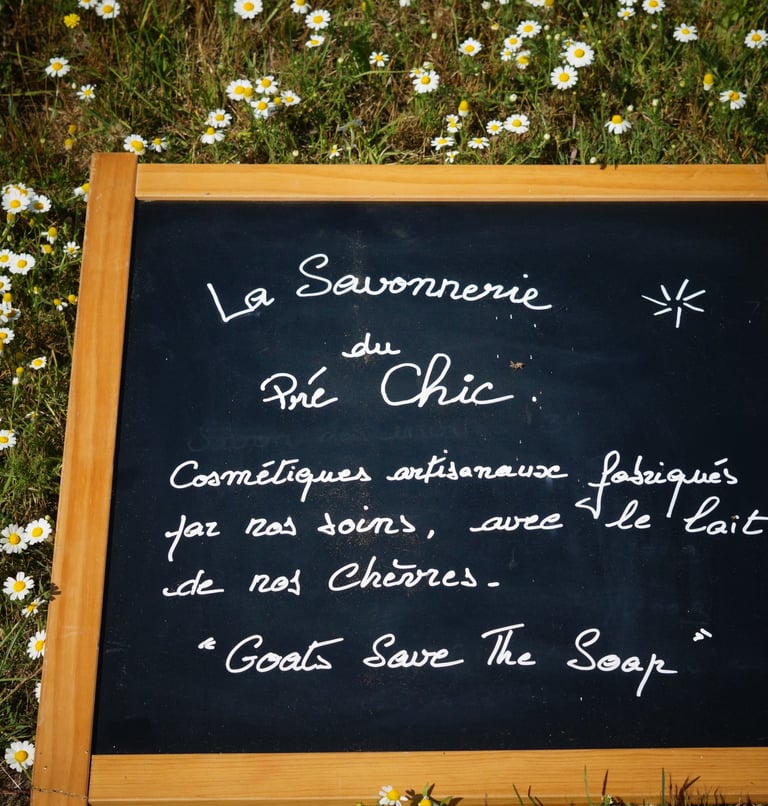 La Savonnerie
du
Pré Chic.
Cosmétiques artisanaux fabriqués
par nos soins, avec le lait
de nos Chèvres.
"Goats Save The Soap"